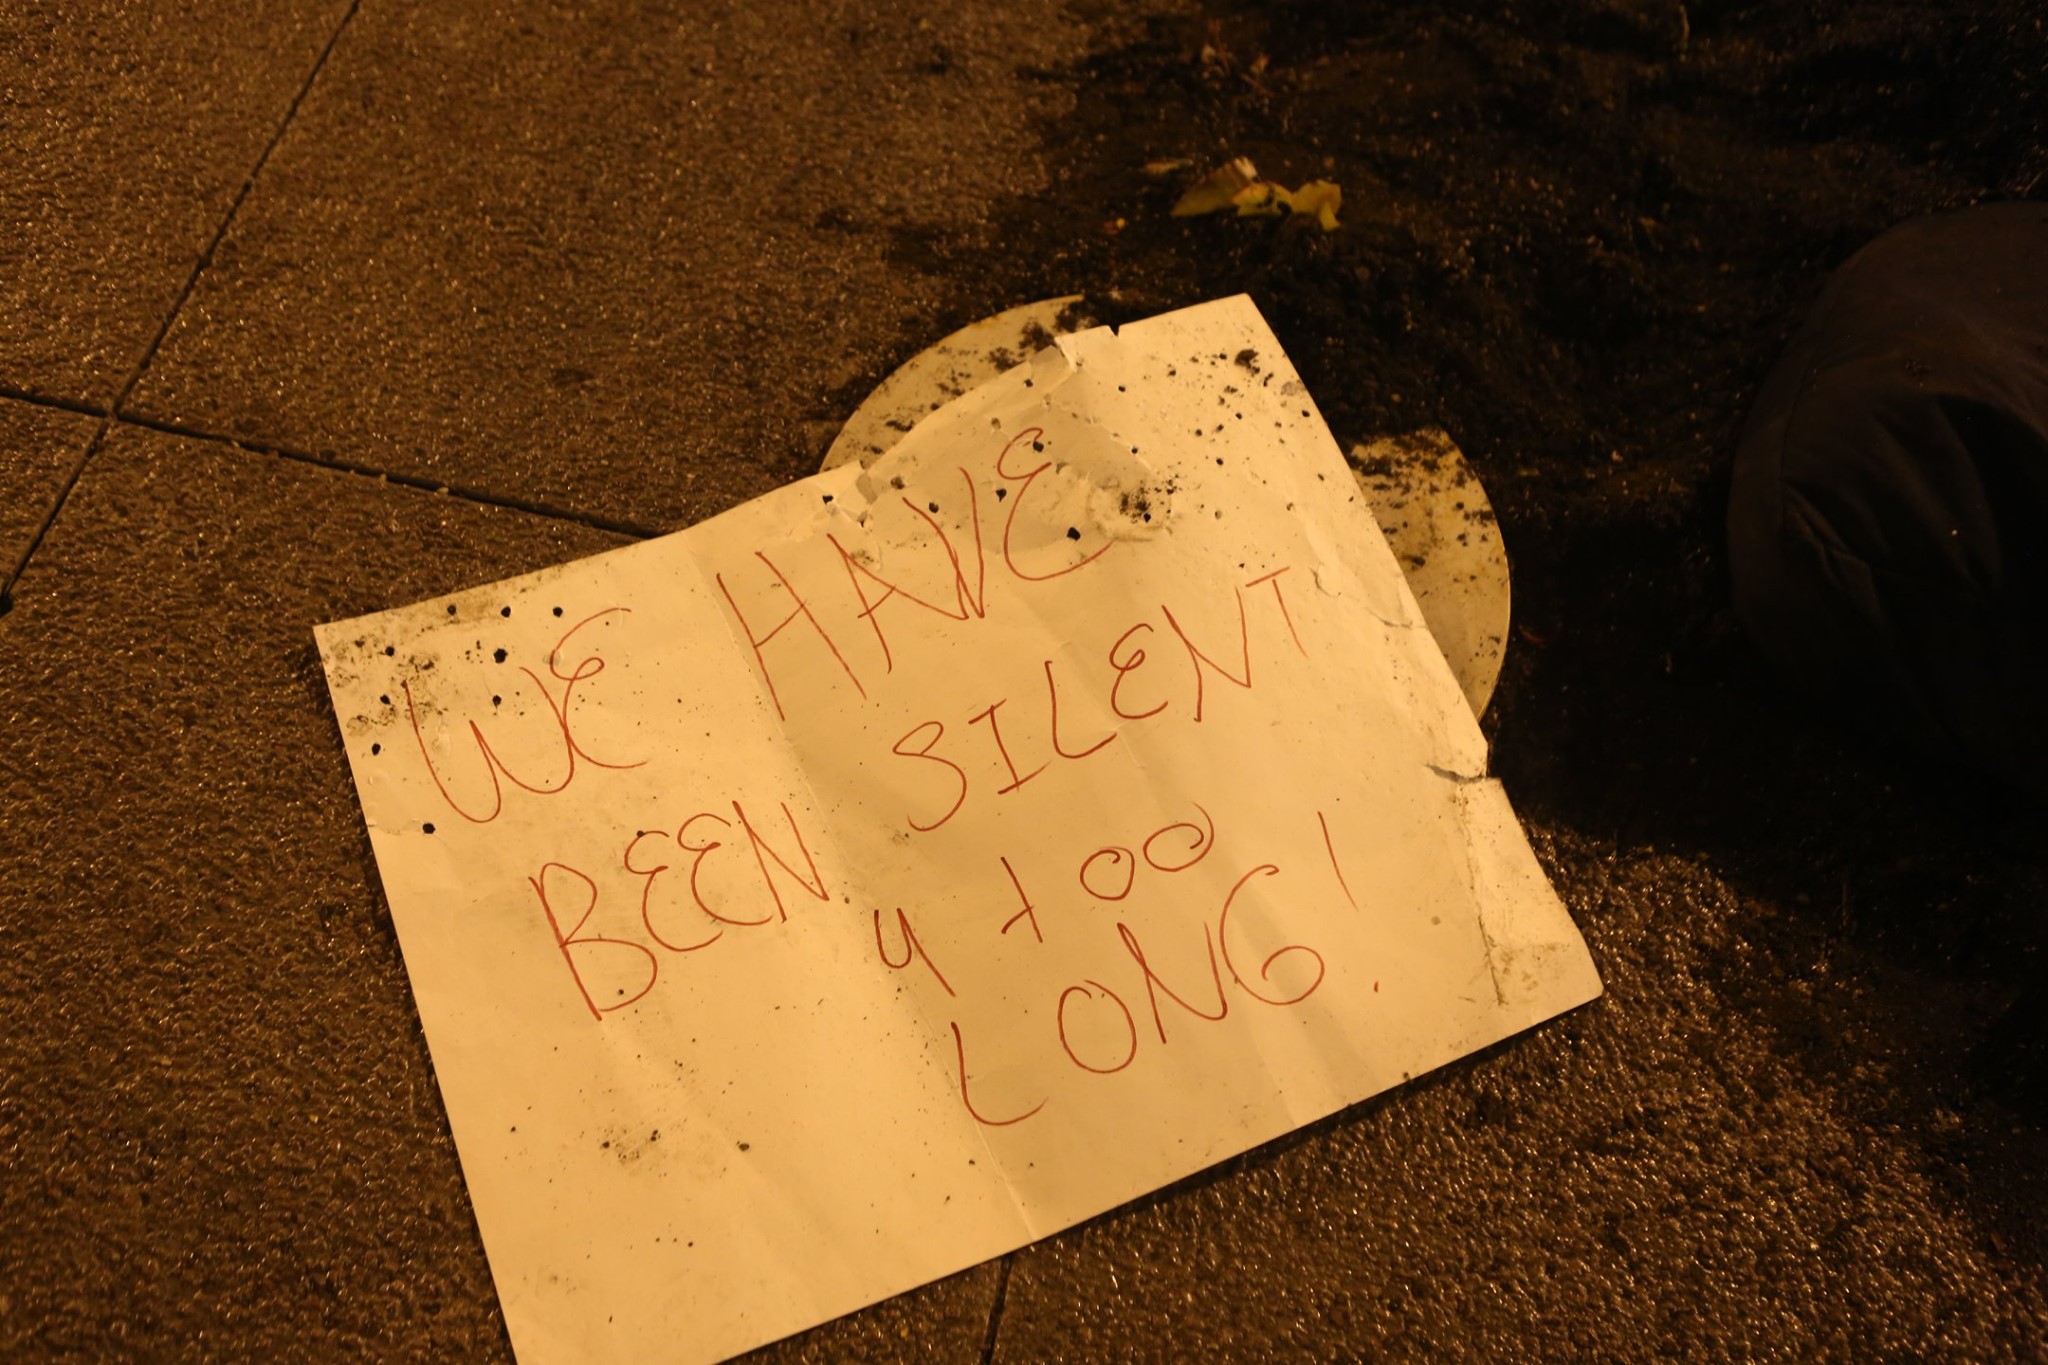 WE HAVE
BEEN SILENT
4 too
LONG!